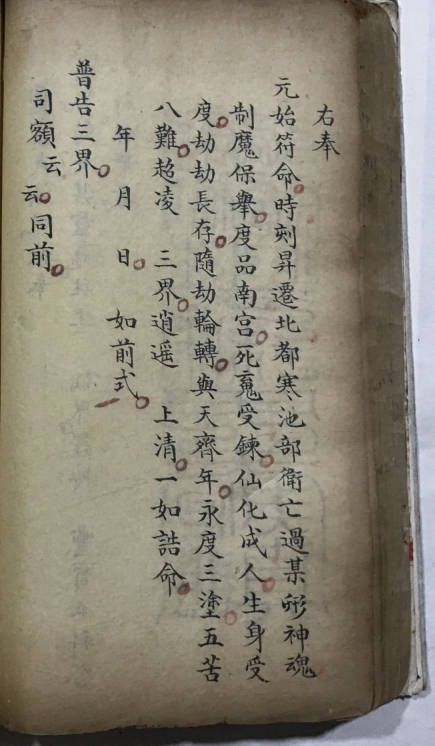 右奉
元始符命時刻昇遷北都寒池部衛亡過某形神魂
制魔保舉度品南宫死魂受鍊仙化成人生身受
度劫劫長存隨劫輪轉與天齊年永度三塗五苦
八難超凌 三界逍遥 上清一如誥命
年 月 日 如前式
普告三界
司額云云同前